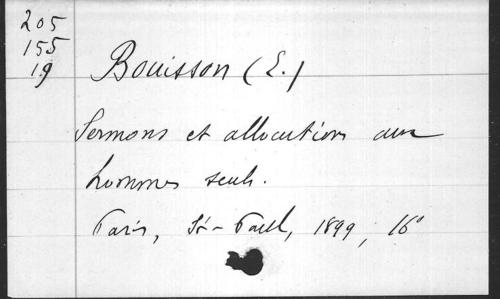 205
155
19
Bouisson (E.)
Sermons et allocutions aux
hommes seuls.
Paris, St-Paul, 1899, 16°